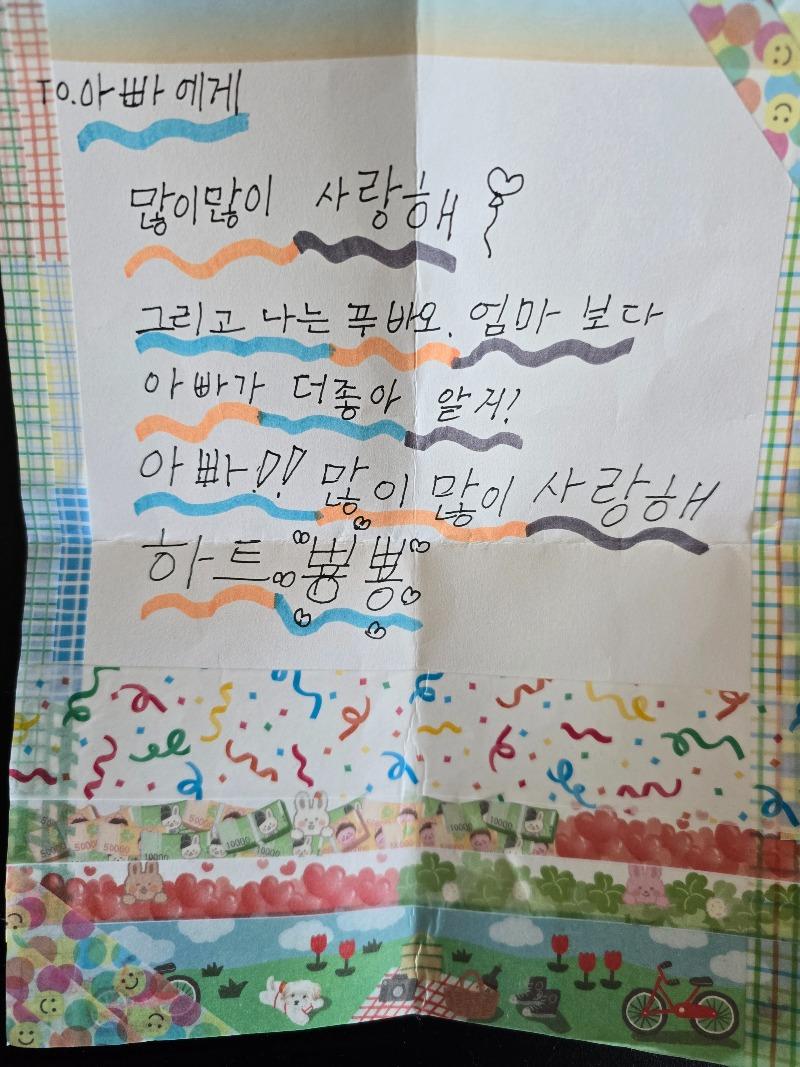 TO.아빠에게
많이많이 사랑해
그리고 나는 푸바오. 엄마 보다
아빠가 더좋아 알지!
아빠!! 많이 많이 사랑해
하트 뿅뿅
50000 10000 50000 10000 10000